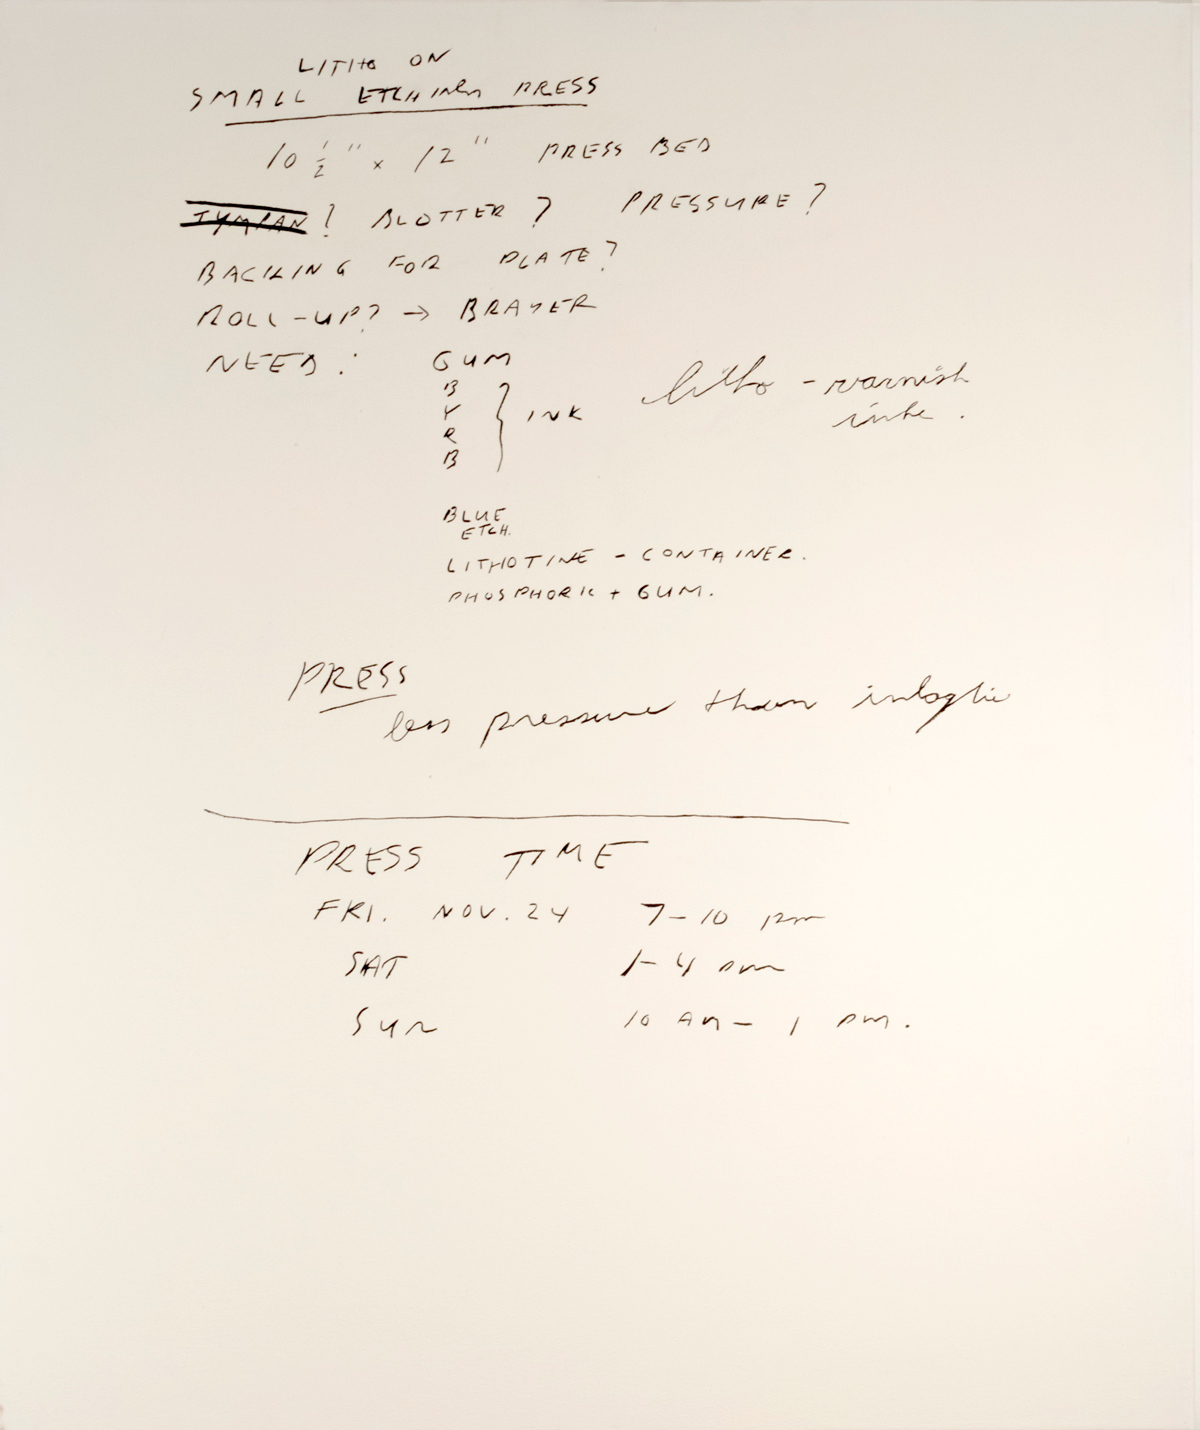 LITHO ON
SMALL ETCHING PRESS
10 ½" x 12" PRESS BED
TYMPAN? BLOTTER? PRESSURE?
BACKING FOR PLATE?
ROLL-UP? → BRAYER
NEED: GUM
B
Y
R
B
} INK
litho - varnish
inke.
BLUE
ETCH.
LITHOTINE - CONTAINER.
PHOSPHORIC + GUM.
PRESS
less pressure than intaglio
PRESS TIME
FRI. NOV. 24 7-10 pm
SAT 1-4 pm
SUN 10 AM - 1 PM.